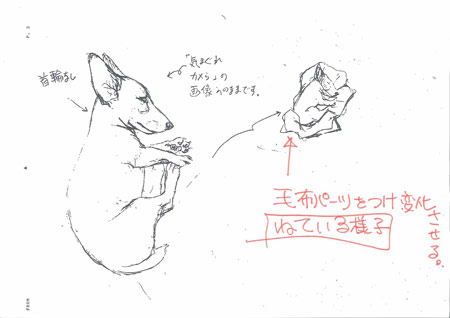 首輪なし
「気まぐれ
カメラ」の
画像そのままです。
毛布パーツをつけ変化
させる。
ねている様子